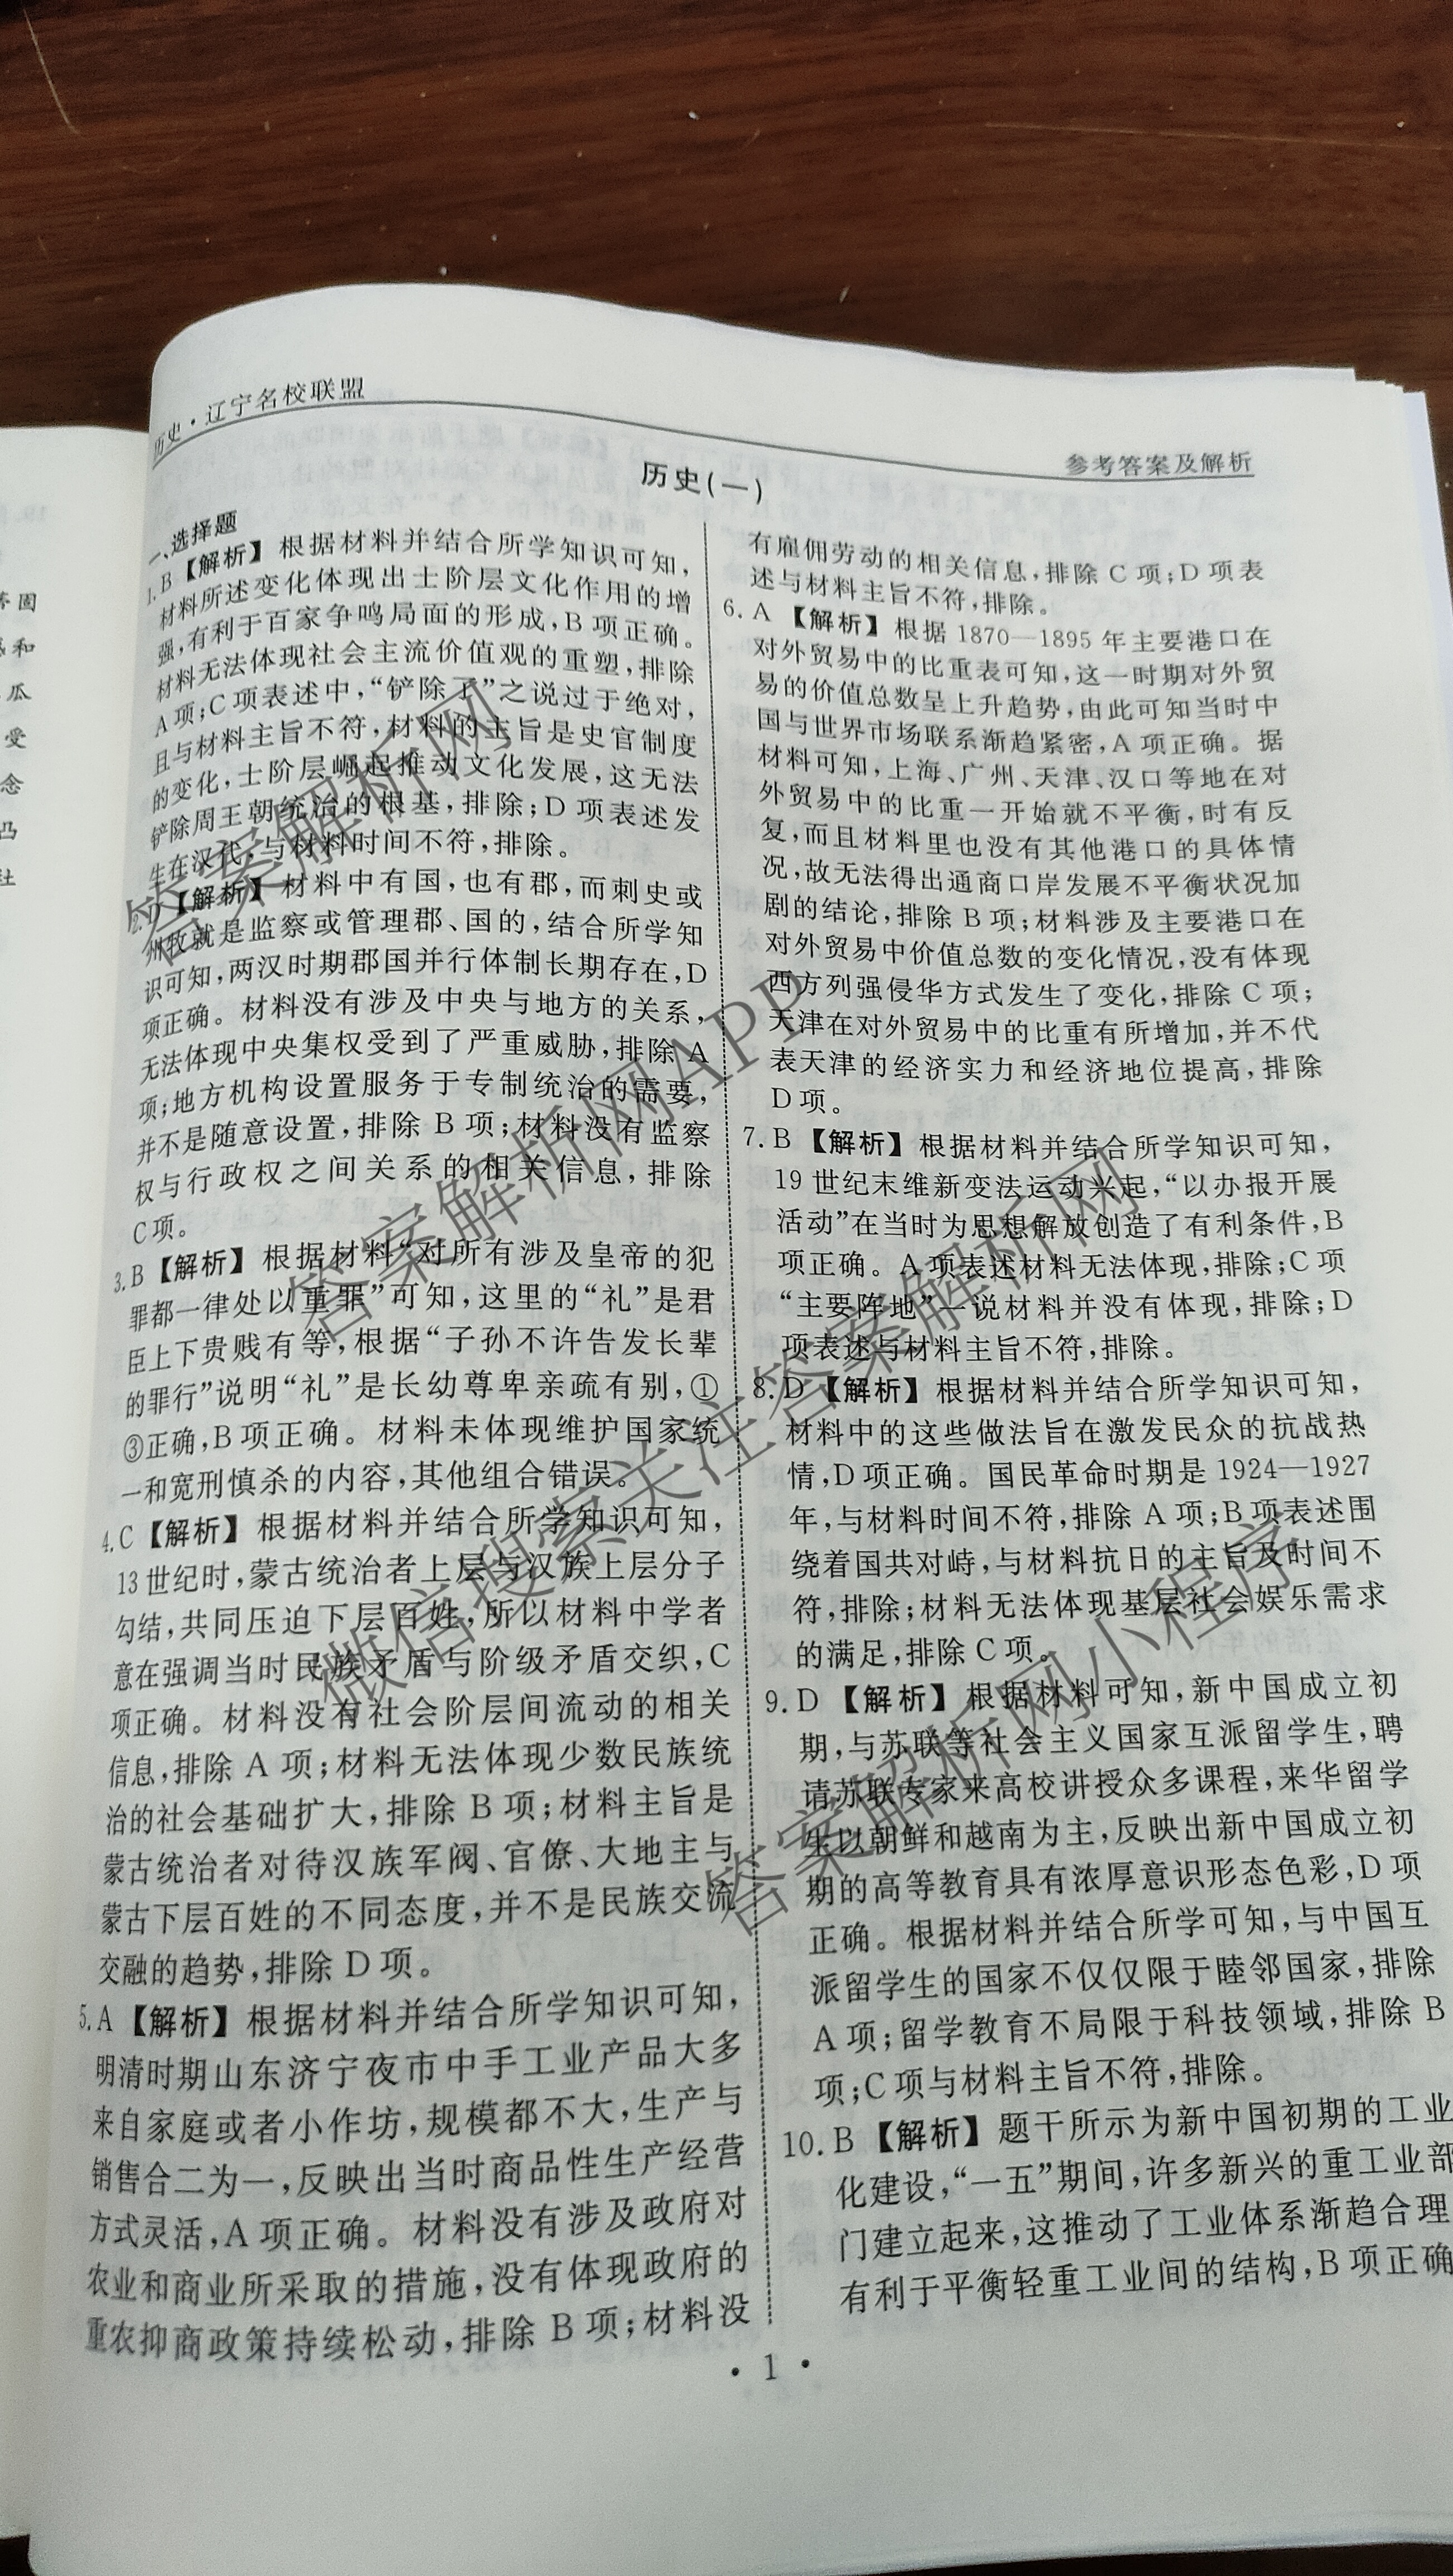 历史·辽宁名校联盟
参考答案及解析
历史(一)
一、选择题
1. B 【解析】 根据材料并结合所学知识可知,
材料所述变化体现出士阶层文化作用的增
强,有利于百家争鸣局面的形成,B 项正确。
材料无法体现社会主流价值观的重塑,排除
A 项;C 项表述中,“铲除了”之说过于绝对,
且与材料主旨不符,材料的主旨是史官制度
的变化,士阶层崛起推动文化发展,这无法
铲除周王朝统治的根基,排除;D 项表述发
生在汉代,与材料时间不符,排除。
2. 【解析】 材料中有国,也有郡,而刺史或
州牧就是监察或管理郡、国的,结合所学知
识可知,两汉时期郡国并行体制长期存在,D
项正确。材料没有涉及中央与地方的关系,
无法体现中央集权受到了严重威胁,排除 A
项;地方机构设置服务于专制统治的需要,
并不是随意设置,排除 B 项;材料没有监察
权与行政权之间关系的相关信息,排除
C 项。
3. B 【解析】 根据材料“对所有涉及皇帝的犯
罪都一律处以重罪”可知,这里的“礼”是君
臣上下贵贱有等,根据“子孙不许告发长辈
的罪行”说明“礼”是长幼尊卑亲疏有别,①
③正确,B 项正确。材料未体现维护国家统
一和宽刑慎杀的内容,其他组合错误。
4. C 【解析】 根据材料并结合所学知识可知,
13 世纪时,蒙古统治者上层与汉族上层分子
勾结,共同压迫下层百姓,所以材料中学者
意在强调当时民族矛盾与阶级矛盾交织,C
项正确。材料没有社会阶层间流动的相关
信息,排除 A 项;材料无法体现少数民族统
治的社会基础扩大,排除 B 项;材料主旨是
蒙古统治者对待汉族军阀、官僚、大地主与
蒙古下层百姓的不同态度,并不是民族交流
交融的趋势,排除 D 项。
5. A 【解析】 根据材料并结合所学知识可知,
明清时期山东济宁夜市中手工业产品大多
来自家庭或者小作坊,规模都不大,生产与
销售合二为一,反映出当时商品性生产经营
方式灵活,A 项正确。材料没有涉及政府对
农业和商业所采取的措施,没有体现政府的
重农抑商政策持续松动,排除 B 项;材料没
有雇佣劳动的相关信息,排除 C 项;D 项表
述与材料主旨不符,排除。
6. A 【解析】 根据 1870—1895 年主要港口在
对外贸易中的比重表可知,这一时期对外贸
易的价值总数呈上升趋势,由此可知当时中
国与世界市场联系渐趋紧密,A 项正确。据
材料可知,上海、广州、天津、汉口等地在对
外贸易中的比重一开始就不平衡,时有反
复,而且材料里也没有其他港口的具体情
况,故无法得出通商口岸发展不平衡状况加
剧的结论,排除 B 项;材料涉及主要港口在
对外贸易中价值总数的变化情况,没有体现
西方列强侵华方式发生了变化,排除 C 项;
天津在对外贸易中的比重有所增加,并不代
表天津的经济实力和经济地位提高,排除
D 项。
7. B 【解析】 根据材料并结合所学知识可知,
19 世纪末维新变法运动兴起,“以办报开展
活动”在当时为思想解放创造了有利条件,B
项正确。A 项表述材料无法体现,排除;C 项
“主要阵地”一说材料并没有体现,排除;D
项表述与材料主旨不符,排除。
8. D 【解析】 根据材料并结合所学知识可知,
材料中的这些做法旨在激发民众的抗战热
情,D 项正确。国民革命时期是 1924—1927
年,与材料时间不符,排除 A 项;B 项表述围
绕着国共对峙,与材料抗日的主旨及时间不
符,排除;材料无法体现基层社会娱乐需求
的满足,排除 C 项。
9. D 【解析】 根据材料可知,新中国成立初
期,与苏联等社会主义国家互派留学生,聘
请苏联专家来高校讲授众多课程,来华留学
生以朝鲜和越南为主,反映出新中国成立初
期的高等教育具有浓厚意识形态色彩,D 项
正确。根据材料并结合所学可知,与中国互
派留学生的国家不仅仅限于睦邻国家,排除
A 项;留学教育不局限于科技领域,排除 B
项;C 项与材料主旨不符,排除。
10. B 【解析】 题干所示为新中国初期的工业
化建设,“一五”期间,许多新兴的重工业部
门建立起来,这推动了工业体系渐趋合理
有利于平衡轻重工业间的结构,B 项正确
· 1 ·
答案解析网
答案解析网APP
微信搜索关注答案解析网
答案解析网小程序